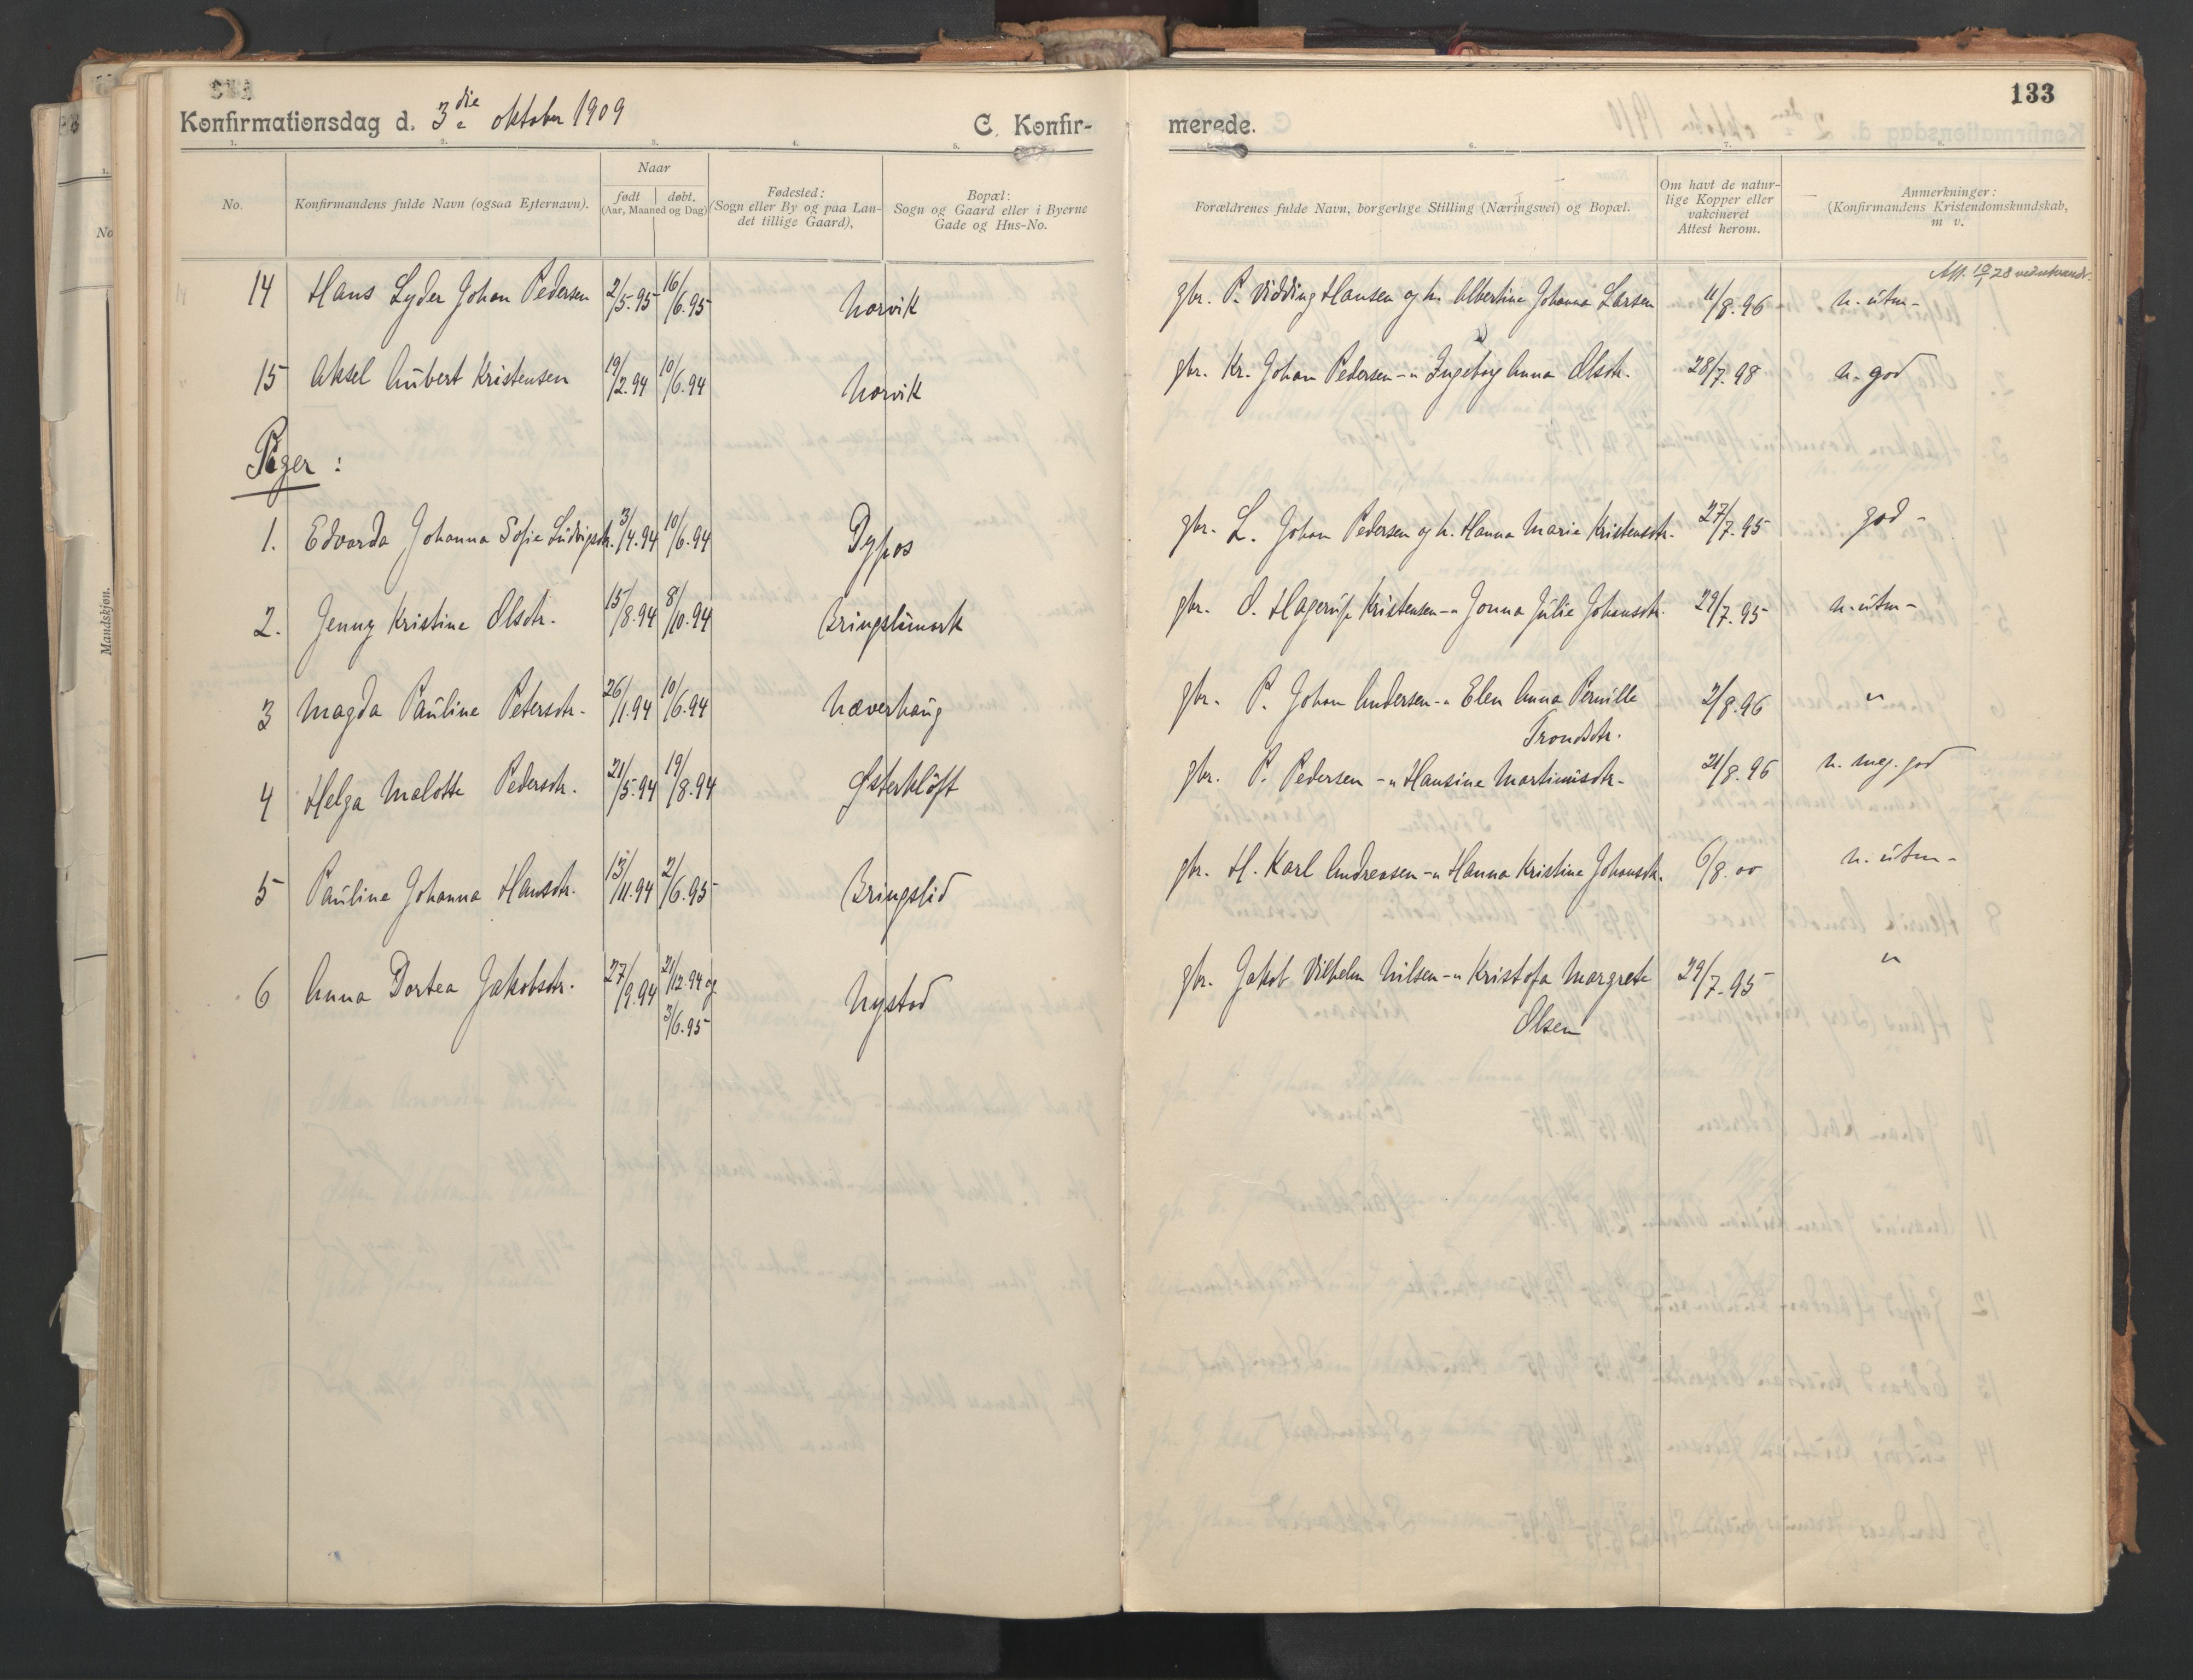 133
Konfirmationsdag d. 3die oktober 1909
C. Konfir-
merede.
1. 2. 3. 4. 5. 6. 7. 8.
No.
Konfirmandens fulde Navn (ogsaa Efternavn).
Naar
født døbt.
(Aar, Maaned og Dag)
Fødested:
(Sogn eller By og paa Lan-
det tillige Gaard),
Bopæl:
Sogn og Gaard eller i Byerne
Gade og Hus-No.
Forældrenes fulde Navn, borgerlige Stilling (Næringsvei) og Bopæl.
Om havt de natur-
lige Kopper eller
vakcineret
Attest herom.
Anmerkninger:
(Konfirmandens Kristendomskundskab,
m v.
14 Hans Lyder Johan Pedersen 2/5.95 16/6.95 Norvik gbr. P. Vidding Hansen og h. Albertine Johanna Larsen 11/8.96 n. utm-
15 Aksel Hubert Kristensen 19/2.94 10/6.94 Norvik gbr. Kr. Johan Pedersen -" Ingeborg Anna Olsdtr. 28/7.98 n. god
Piger:
1. Edvarda Johanna Sofie Ludvigsdtr. 3/4.94 10/6.94 Dypos gbr. L. Johan Pedersen og h. Hanna Marie Kristensdtr. 27/7.95 god-
2. Jenny Kristine Olsdtr. 15/8.94 8/10.94 Bringslimark gbr. O. Hagerup Kristensen -" Jonna Julie Johansdtr. 29/7.95 n. utm-
3 Magda Pauline Petersdtr. 26/1.94 10/6.94 Næverhaug gbr. P. Johan Andersen -" Elen Anna Pernille 2/8.96 "
Trondsdtr.
4 Helga Malotte Pedersdtr. 21/5.94 19/8.94 Østerkløft gbr. P. Pedersen -" Hansine Martinusdtr. 21/8.96 n. meg. god
5 Pauline Johanna Hansdtr. 13/11.94 2/6.95 Bringslid gbr. H. Karl Andreasen -" Hanna Kristine Johansdtr. 6/8.00 n. utm-
6 Anna Dortea Jakobsdtr. 27/9.94 21/12.94 og Nystad gbr. Jakob Vilhelm Nilsen -" Kristofa Margrete 29/7.95 "
3/6.95 Olsen
No
Mandskjøn.